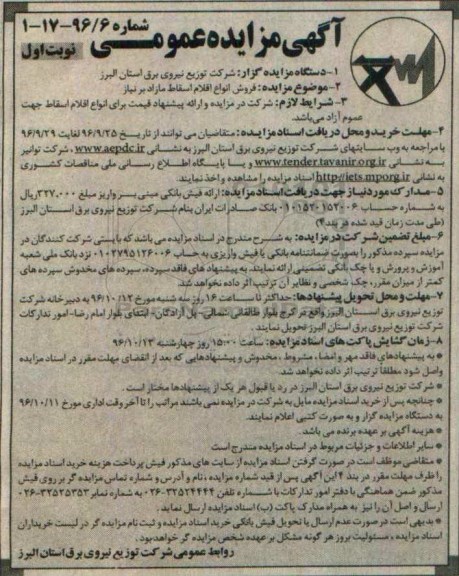 آگهی مزایده عمومی
شماره ۹۶/۶-۱۷-۱
نوبت اول
۱-دستگاه مزایده گزار: شرکت توزیع نیروی برق استان البرز
۲-موضوع مزایده: فروش انواع اقلام اسقاط مازاد بر نیاز
۳- شرایط لازم: شرکت در مزایده و ارائه پیشنهاد قیمت برای انواع اقلام اسقاط جهت
عموم آزاد می‌باشد.
۴-مهلت خرید و محل دریافت اسناد مزایده: متقاضیان می توانند از تاریخ ۹۶/۹/۲۵ لغایت ۹۶/۹/۲۹
با مراجعه به وب سایتهای شرکت توزیع نیروی برق استان البرز به نشانی www.aepdc.ir، شرکت توانیر
به نشانی www.tender.tavanir.org.ir و یا پایگاه اطلاع رسانی ملی مناقصات کشوری
به نشانی http://iets.mporg.ir اسناد مزایده را مشاهده و اخذ نمایند.
۵-مدارک مورد نیاز جهت دریافت اسناد مزایده: ارائه فیش بانکی مبنی بر واریز مبلغ ۳۲۷.۰۰۰ریال
به شماره حساب ۰۱۰۱۵۲۰۱۵۲۰۰۶ بانک صادرات ایران بنام شرکت توزیع نیروی برق استان البرز
(طی مدت زمان قید شده در بند۴)
۶-مبلغ تضمین شرکت در مزایده: به شرح مندرج در اسناد مزایده می باشد که بایستی شرکت کنندگان در
مزایده سپرده مذکور را بصورت ضمانتنامه بانکی یا فیش واریزی به حساب ۰۱۰۲۷۹۵۱۲۶۰۰۶ نزد بانک ملی شعبه
آموزش و پرورش و یا چک بانکی تضمینی ارائه نمایند. به پیشنهاد های فاقد سپرده، سپرده های مخدوش سپرده های
کمتر از میزان مقرر، چک شخصی و نظایر آن ترتیب اثر داده نخواهد شد.
۷-مهلت و محل تحویل پیشنهادها: حداکثر تا ساعت ۱۶ روز سه شنبه مورخ ۹۶/۱۰/۱۲ به دبیرخانه شرکت
توزیع نیروی برق استان البرز واقع در کرج بلوار طالقانی شمالی- پل آزادگان- ابتدای بلوار امام رضا- امور تدارکات
شرکت توزیع نیروی برق استان البرز تحویل نمایند.
۸-زمان گشایش پاکت های اسناد مزایده: ساعت ۱۵:۰۰ روز چهارشنبه ۹۶/۱۰/۱۳
* به پیشنهادهای فاقد مهر و امضا، مشروط، مخدوش و پیشنهادهایی که بعد از انقضای مهلت مقرر در اسناد مزایده
واصل شود مطلقا ترتیب اثر داده نخواهد شد.
* شرکت توزیع نیروی برق استان البرز در رد یا قبول هر یک از پیشنهادها مختار است.
* چنانچه پس از خرید اسناد مزایده مایل به شرکت در مزایده نمی باشند مراتب را تا آخر وقت اداری مورخ ۹۶/۱۰/۱۱
به دستگاه مزایده گزار و به صورت کتبی اعلام نمایند.
* هزینه آگهی بر عهده برنده می باشد.
* سایر اطلاعات و جزئیات مربوط در اسناد مزایده مندرج است
* متقاضی موظف است در صورت گرفتن اسناد مزایده از سایت های مذکور فیش پرداخت هزینه خرید اسناد مزایده
را ظرف مهلت مقرر در بند ۴ این آگهی پس از قید شماره مزایده، نام و آدرس و شماره تماس مزایده گر بر روی فیش
مذکور ضمن هماهنگی با دفتر امور تدارکات با شماره تلفن ۳۲۵۲۴۴۴۴-۰۲۶ به شماره نمابر ۳۲۵۲۵۳۵۳-۰۲۶
ارسال و اصل آن را نیز به همراه مدارک پاکت (ب) اسناد مزایده ارسال نماید.
* بدیهی است در صورت عدم ارسال یا تحویل فیش بانکی خرید اسناد مزایده و ثبت نام مزایده گر در لیست خریداران
اسناد مزایده، مسئولیت بروز هر گونه مشکل بر عهده شخص مزایده گر خواهد بود.
روابط عمومی شرکت توزیع نیروی برق استان البرز